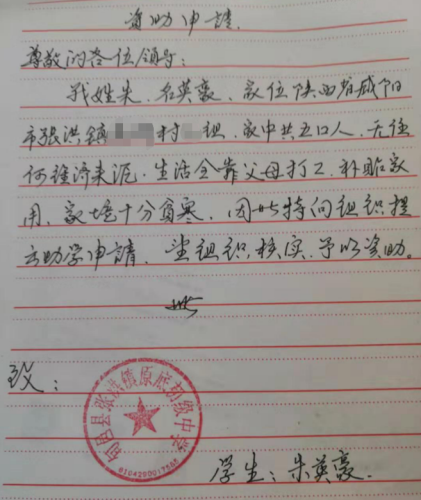 资助申請
尊敬的各位领导:
我姓朱、名英豪、家位陕西省咸阳
市张洪镇 村 组、家中共五口人、无任
何经济来源、生活全靠父母打工补贴家
用、家境十分貧寒、因此特向组织提
出助学申請、望组织核实、予以资助。
此
致:
旬邑县张洪镇原底初级中学
学生:朱英豪.